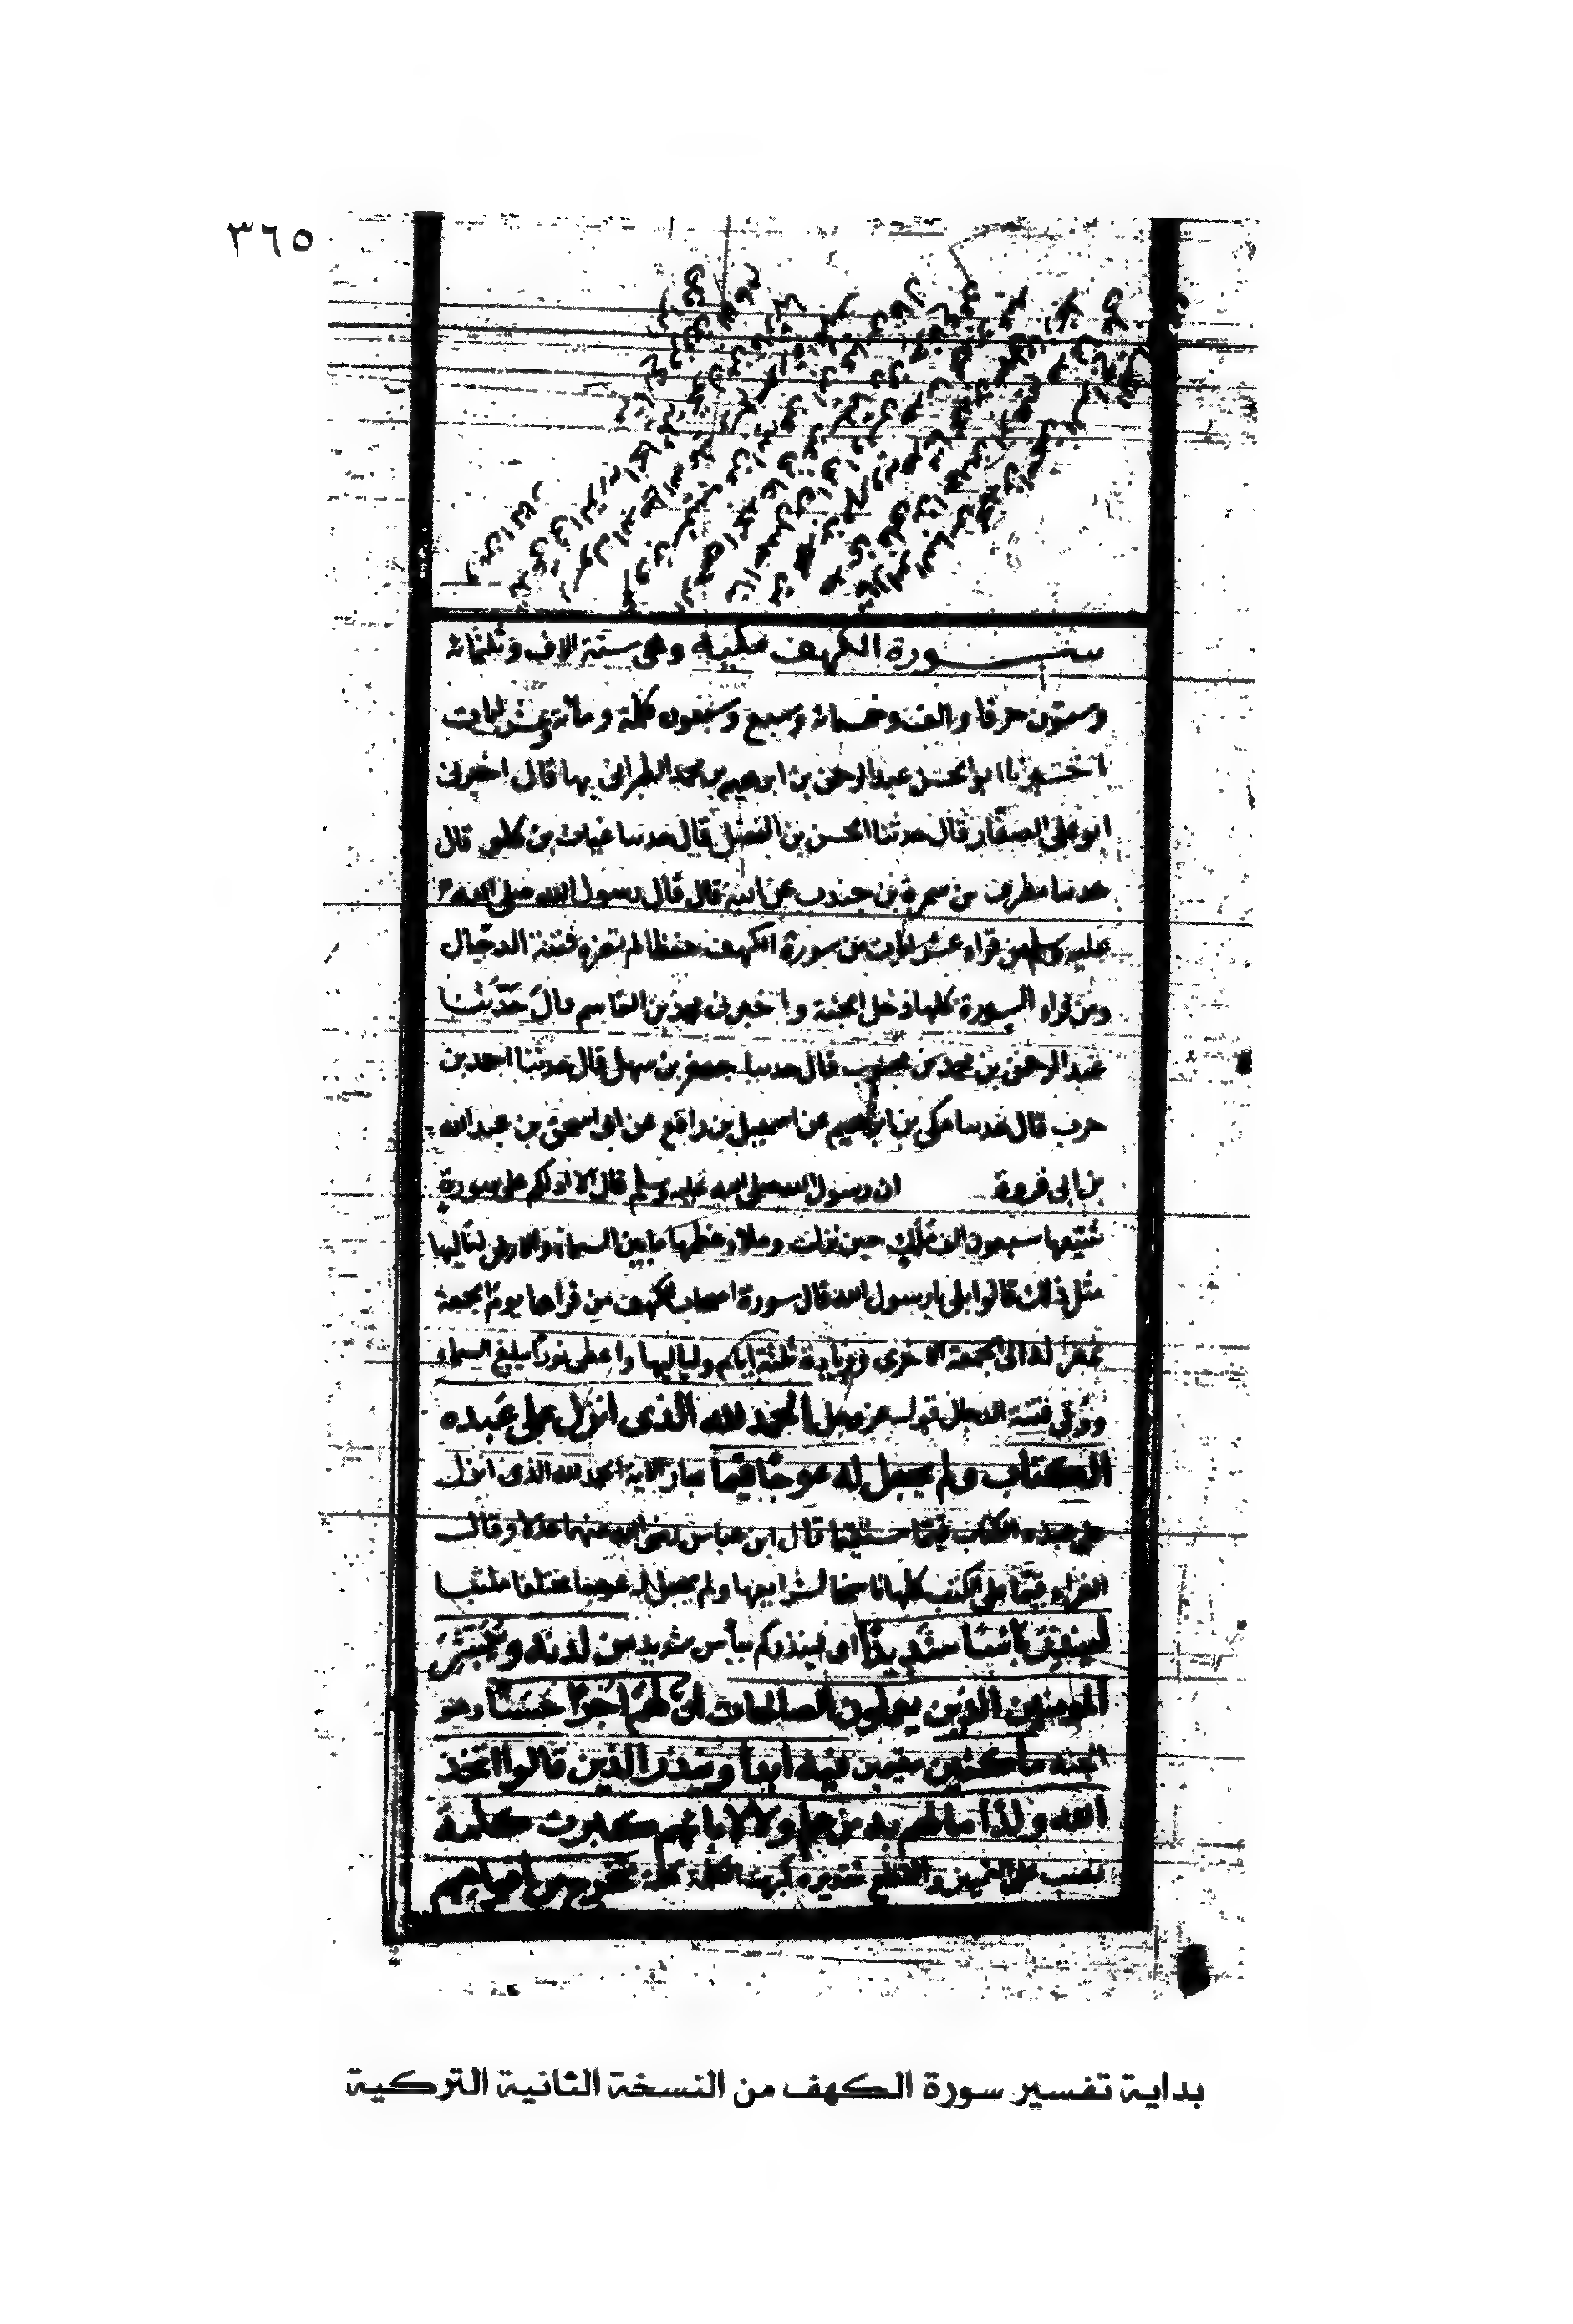 ٣٦٥
ســـورة الكهف مكية وهى ستة الاف وثلثمائة
وستون حرفا والف وخسمائة وسبع وسبعون كلمة ومائة وعشر ايات
اخبرنا ابو الحسن عبد الرحمن بن ابرهيم بن محمد الطبرانى بها قال اخبرنى
ابو على الصفار قال حدثنا الحسن بن الفضل قال حدثنا غياث بن كلوب قال
حدثنا مطرف بن سمرة بن جندب عن ابيه قال قال رسول الله صلى الله
عليه وسلم من قراء عشر ايات من سورة الكهف حفظا لم تضره فتنة الدجال
ومن قراء السورة كلها دخل الجنة واخبرنى محمد بن القاسم قال حَدّثنا
عبد الرحمن بن محمد بن محبوب قال حدثنا جعفر بن سهل قال حدثنا احمد بن
حرب قال حدثنا مكى بن ابرهيم عن اسمعيل بن رافع عن ابى اسحق بن عبد الله
بن ابى فروة ان رسول الله صلى الله عليه وسلم قال الا ادلكم على سورة
شيّعها سبعون الف ملك حين نزلت وملاء عظمها ما بين السماء والارض لتاليها
مثل ذلك قالوا بلى يا رسول الله قال سورة اصحاب الكهف من قراها يوم الجمعة
غفر له الى الجمعة الاخرى وزيادة ثلثة ايام ولياليها واعطى نورا يبلغ السماء
ووُقى فتنة الدجال قوله عز وجل الحمد لله الذى انزل على عَبده
الكتاب ولم يجعل له عوجًا قيّما مجاز الاية الحمد لله الذى انزل
على عبده الكتاب قيّما مستقيما قال ابن عباس رضى الله عنهما عدلا وقال
الفراء قيّما على الكتب كلها ناسخا لشرايعها ولم يجعل له عوجا مختلفا ملتبسا
لينذر باسًا شديدًا اى لينذركم بباس شديد من لدنه ويُبَشّرَ
المومنين الذين يعملون الصالحات انّ لهم اجرًا حَسَنًا وهو
الجنة ماكثين مقيمين فيه ابدا وينذر الذين قالوا اتخذ
الله ولدًا مالهم به من علم ولا لابائهم كبرت كلمة
نصب على التمييز والقطع تقديره كبرت الكلمة كلمة تخرج من افواههم
بداية تفسير سورة الكهف من النسخة الثانية التركية